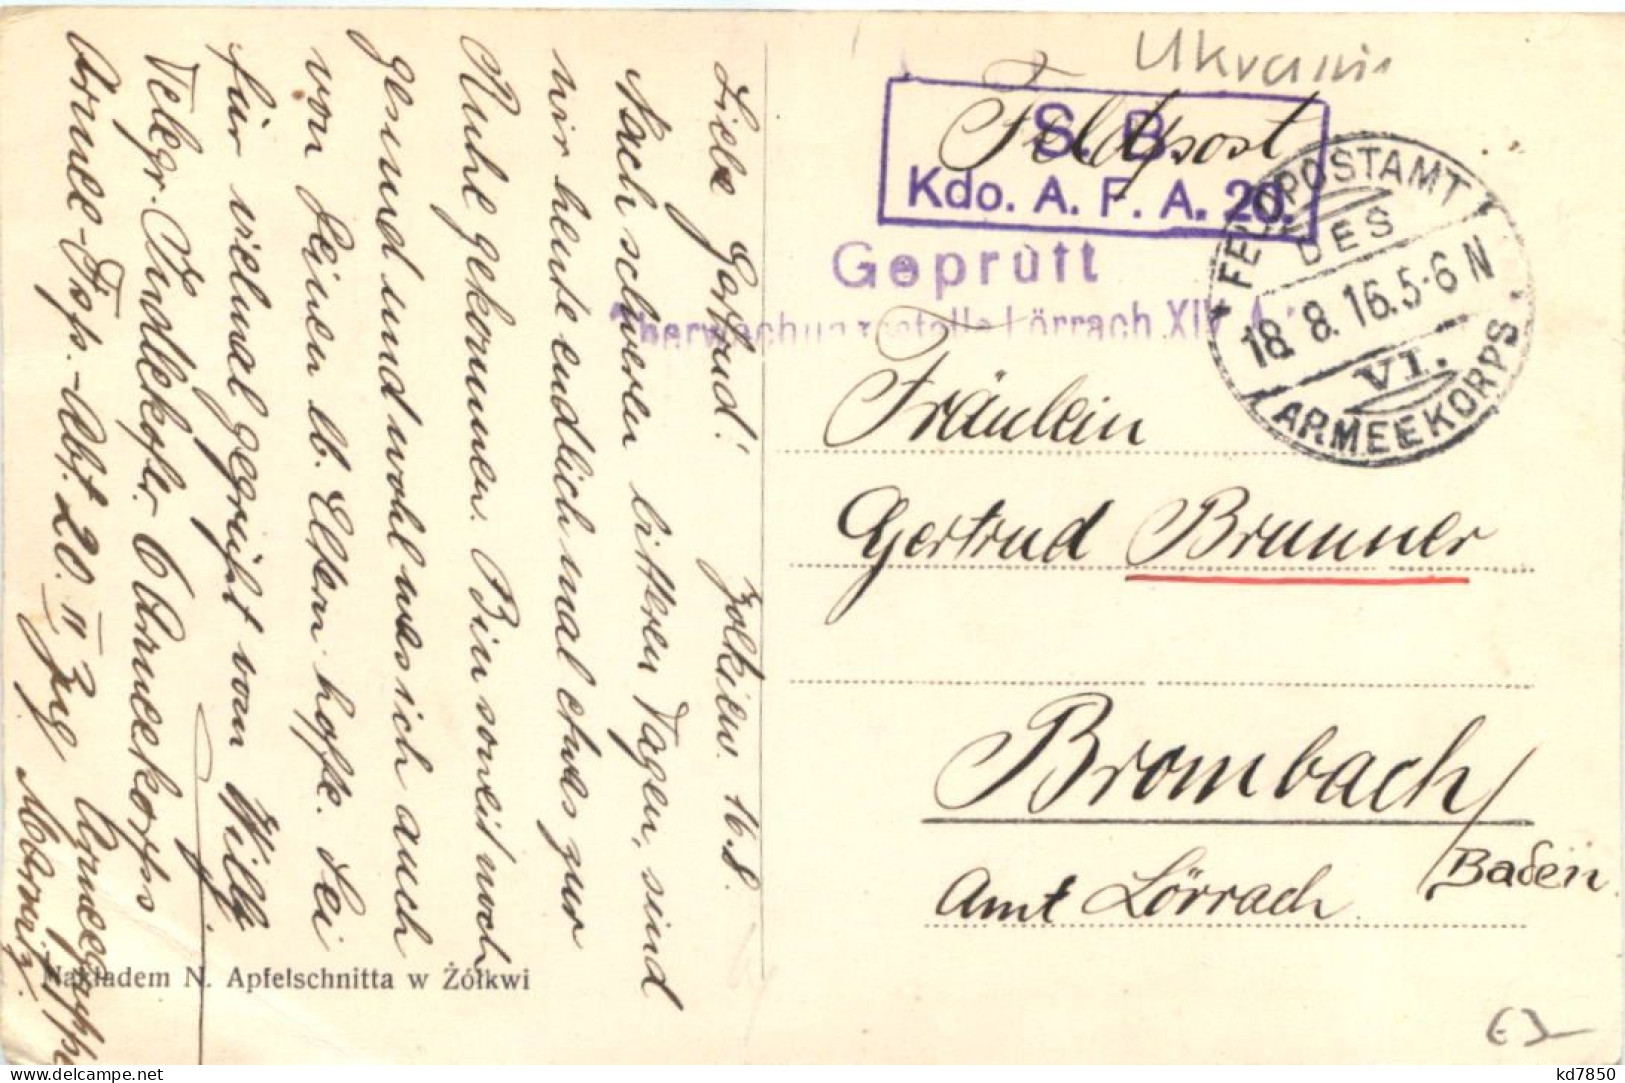 Ukraini
Feldpost
S. B.
Kdo. A. F. A. 20.
Geprüft
Überwachungsstelle Lörrach XIV. A
FELDPOSTAMT
DES
18. 8. 16. 5-6 N
VI.
ARMEEKORPS
Fräulein
Gertrud Brunner
Brombach/
Baden
Amt Lörrach
Zolkiew. 16.8.
Liebe Gertrud!
Nach schweren bittren Tagen, sind
wir heute endlich mal etwas zur
Ruhe gekommen. Bin soweit noch
gesund und wohl was ich auch
von Deinen lb. Eltern hoffe. Sei
für vielmal gegrüßt vom Willy
Telegr. 6 Armeekorps
Armee-Fsp.-Abt. 20. II Zug
Nakładem N. Apfelschnitta w Żółkwi
delcampe.net
kd7850